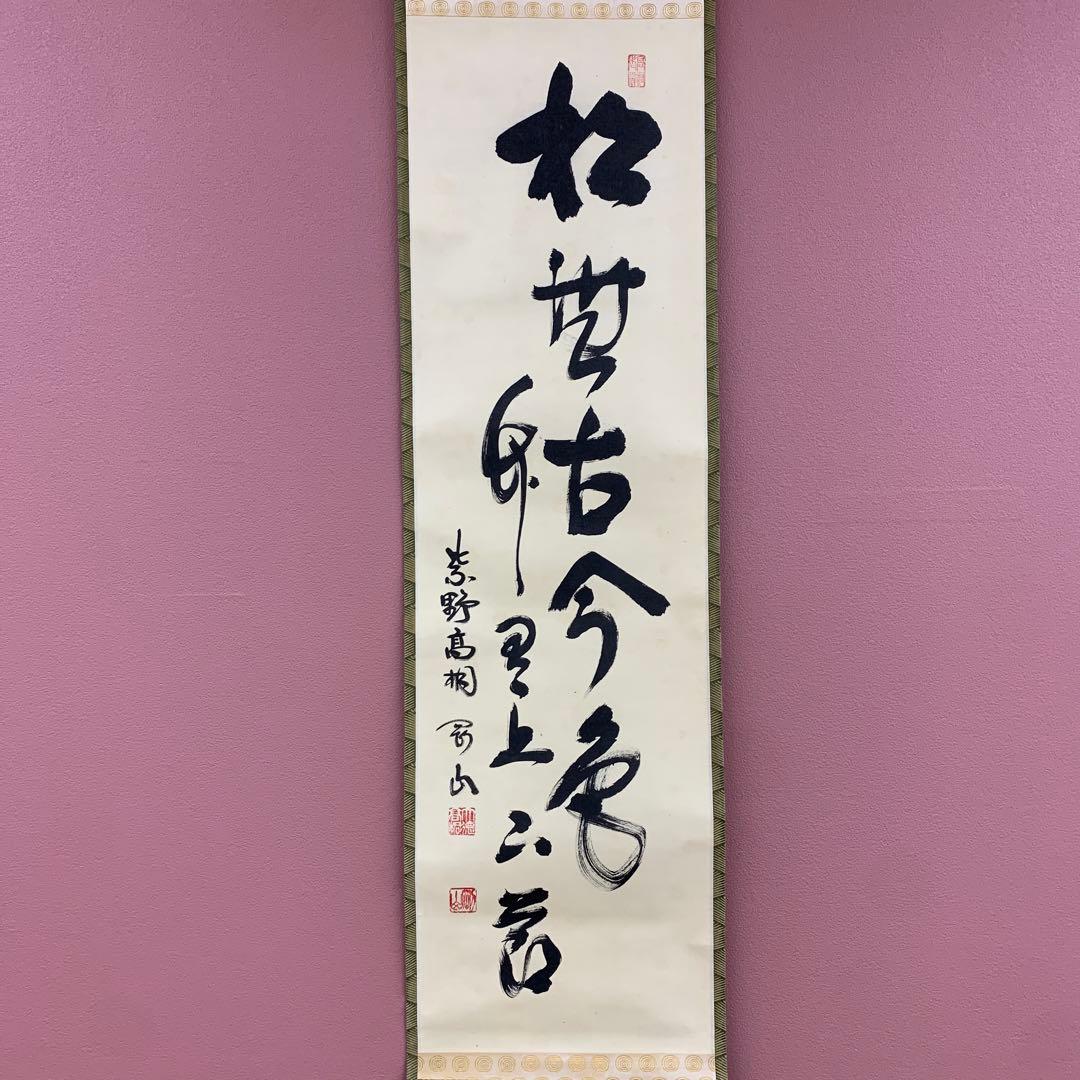 松無古今色
竹有上下節
紫野高桐 剛山